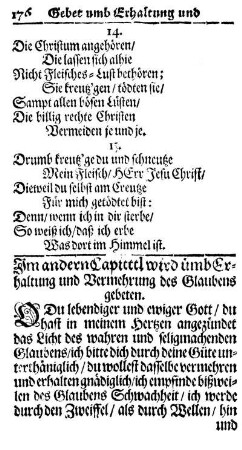 176 Gebet umb Erhaltung und
14.
Die Christum angehören/
Die lassen sich albie
Nicht Fleisches-Lust bethören;
Sie kreutz'gen / tödten sie/
Sampt allen bösen Lüsten/
Die billig rechte Christen
Vermeiden je und je.
15.
Drumb kreutz'ge du und schneutze
Mein Fleisch/ HErr Jesu Christ/
Dieweil du selbst am Creutze
Für mich getödtet bist:
Denn/ wenn ich in dir sterbe/
So weiß ich/ daß ich erbe
Was dort im Himmel ist.
Im andern Capittel wird umb Er-
haltung und Vermehrung des Glaubens
gebeten.
O Du lebendiger und ewiger Gott / du
hast in meinem Hertzen angezündet
das Licht des wahren und seligmachenden
Glaubens/ ich bitte dich durch deine Güte un-
terthäniglich/ du wollest dasselbe vermehren
und erhalten gnädiglich/ ich empfinde bißwei-
len des Glaubens Schwachheit / ich werde
durch den Zweiffel/ als durch Wellen/ hin
und